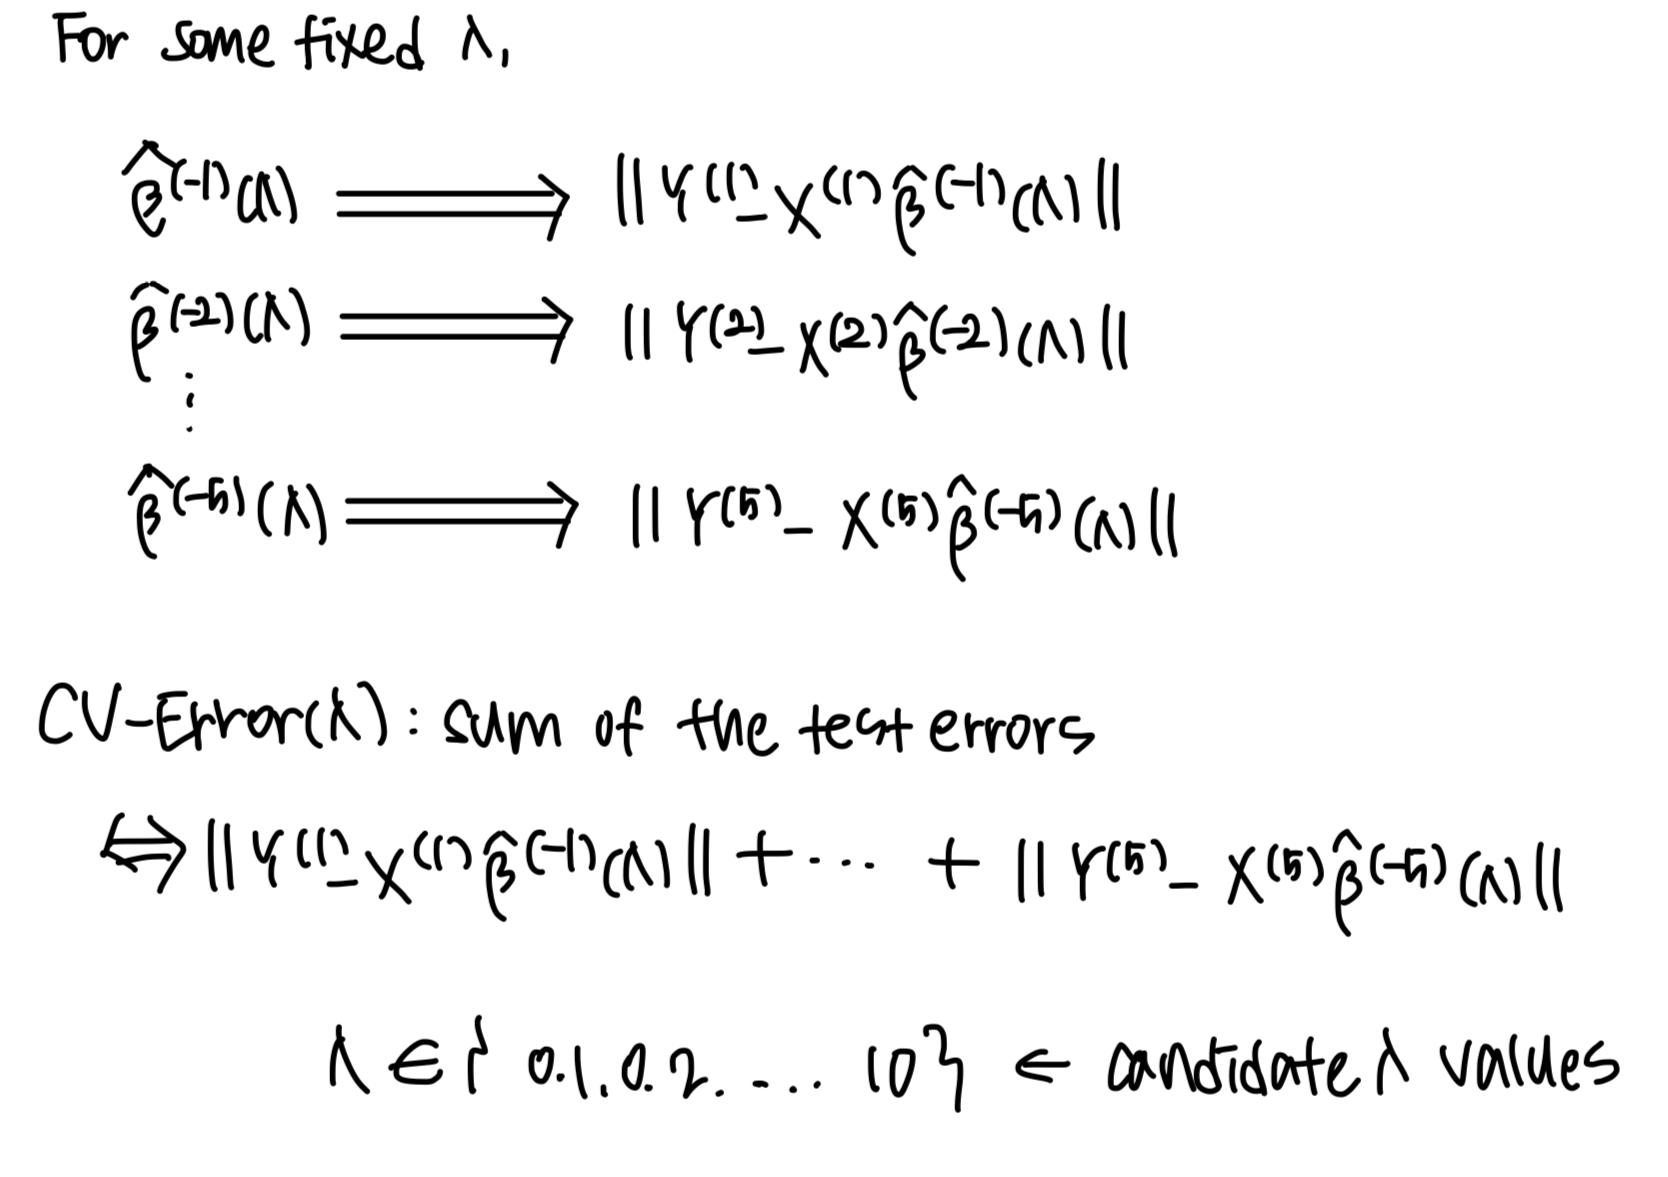 For some fixed λ,
β̂^(-1)(λ) ⟹ || Y^(1) - X^(1) β̂^(-1)(λ) ||
β̂^(-2)(λ) ⟹ || Y^(2) - X^(2) β̂^(-2)(λ) ||
⋮
β̂^(-5)(λ) ⟹ || Y^(5) - X^(5) β̂^(-5)(λ) ||
CV-Error(λ) : sum of the test errors
⇔ || Y^(1) - X^(1) β̂^(-1)(λ) || + ... + || Y^(5) - X^(5) β̂^(-5)(λ) ||
λ ∈ { 0.1, 0.2, ... 10 } ← candidate λ values